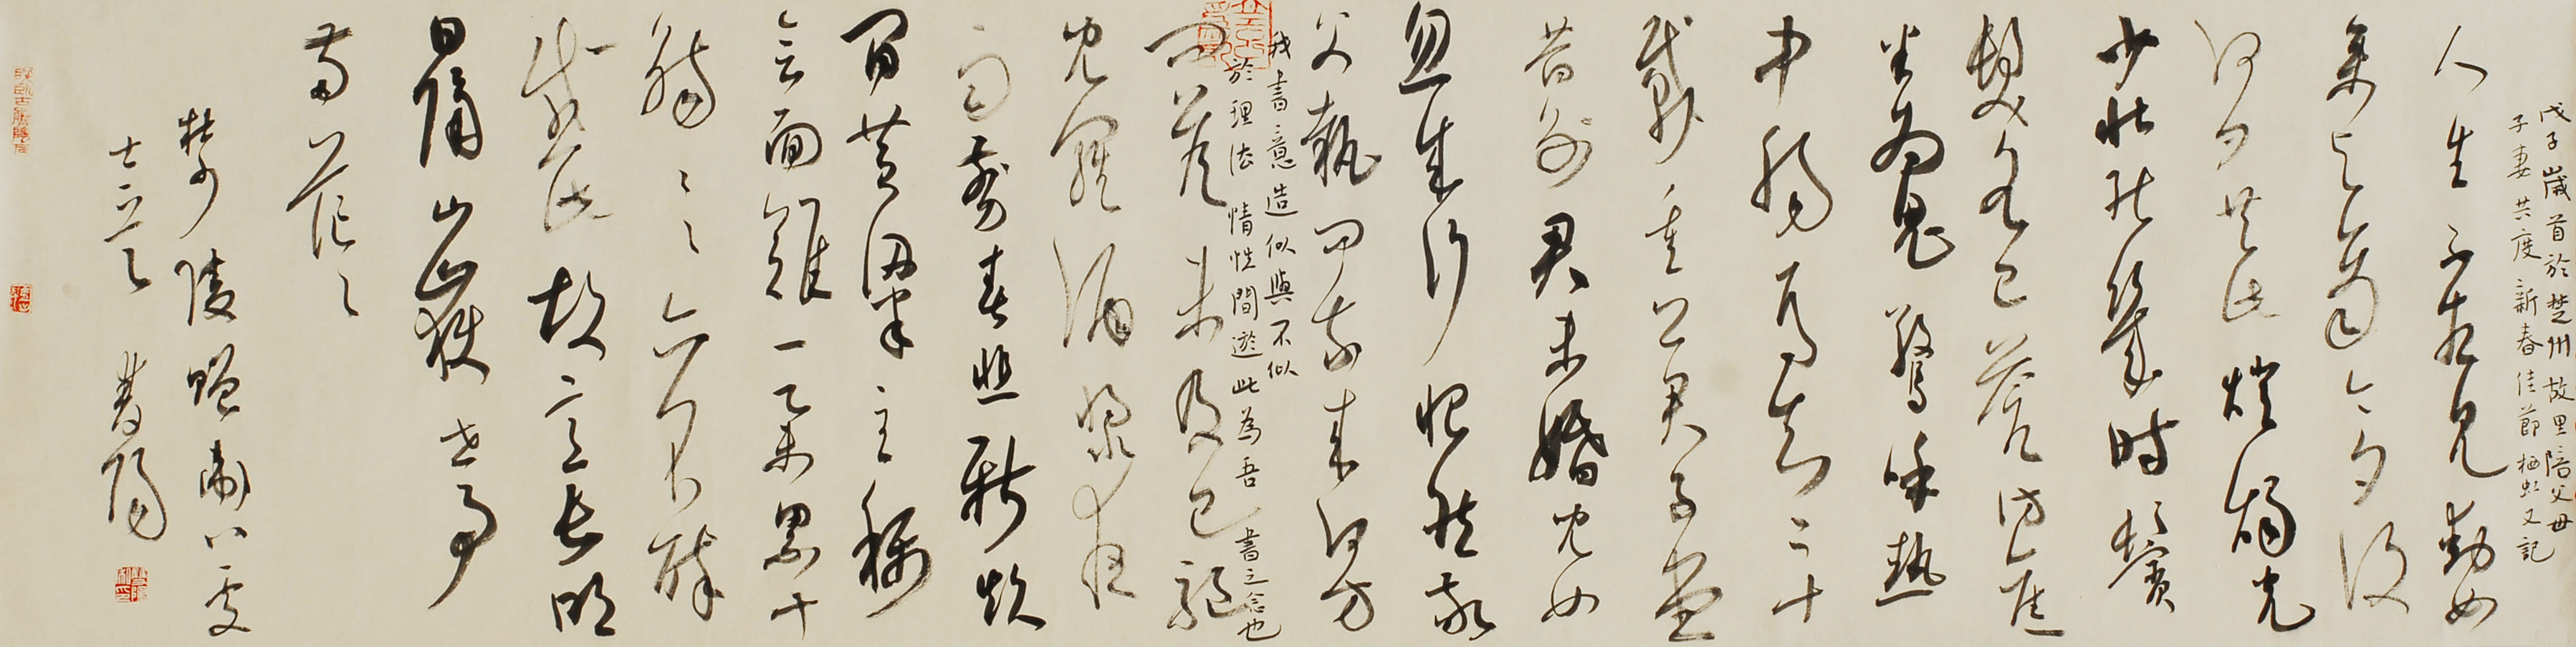 戊子歲首於楚州故里陪父母
子妻共度新春佳節栖虹又記
人生不相見動如
參與商今夕復
何夕共此燈燭光
少壯能幾時鬢
髮各已蒼訪舊
半為鬼驚呼熱
中腸焉知二十
載重上君子堂
昔別君未婚兒女
忽成行怡然敬
父執問我來何方
我書意造似與不似
於理法情性間遊此為吾書之念也
問答未及已驅
兒羅酒漿夜
雨剪春韭新炊
間黃粱主稱
會面難一舉累十
觴〻〻亦不醉
感故意長明
日隔山嶽世事
兩茫〻
杜少陵贈衛八處
士